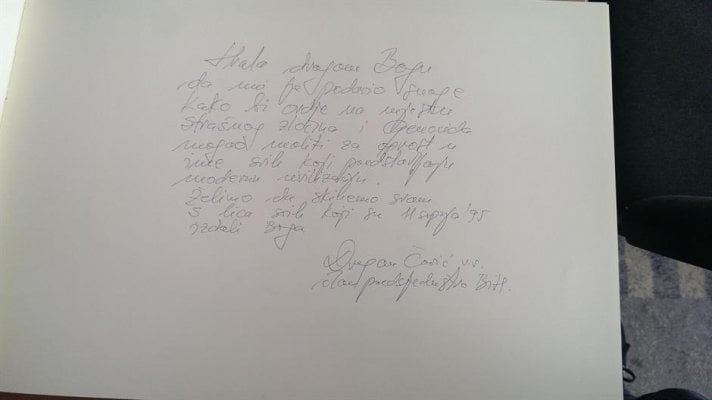 Hvala dragom Bogu
da mi je podario snage
kako bi ovdje na mjestu
strašnog zločina i genocida
mogao moliti za oprost u
ime svih koji predstavljaju
modernu civilizaciju.
Želimo da skinemo sram
s lica svih koji su 11 srpnja '95
izdali Boga
Dragan Čović v.s.
član predsjedništva BiH.